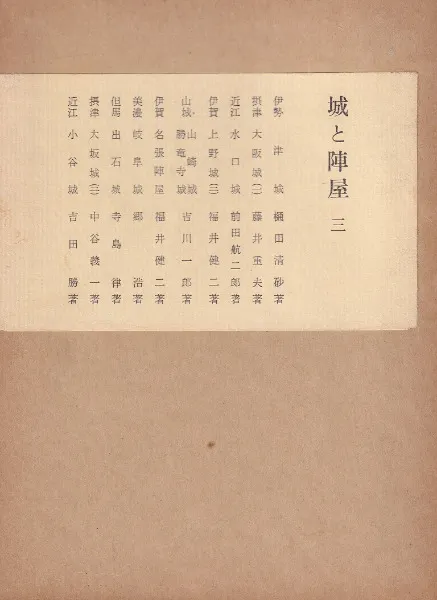 城と陣屋 三
伊勢 津城 樋田清砂著
摂津 大阪城(一) 藤井重夫著
近江 水口城 前田航二郎著
伊賀 上野城(三) 福井健二著
山城 山崎城・勝竜寺城 吉川一郎著
伊賀 名張陣屋 福井健二著
美濃 岐阜城 郷浩著
但馬 出石城 寺島律著
摂津 大坂城(二) 中谷義一著
近江 小谷城 吉田勝著